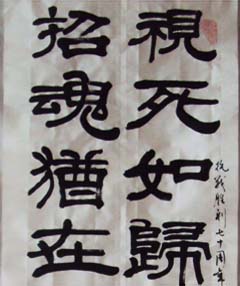 視死如歸
招魂猶在
抗战胜利七十周年